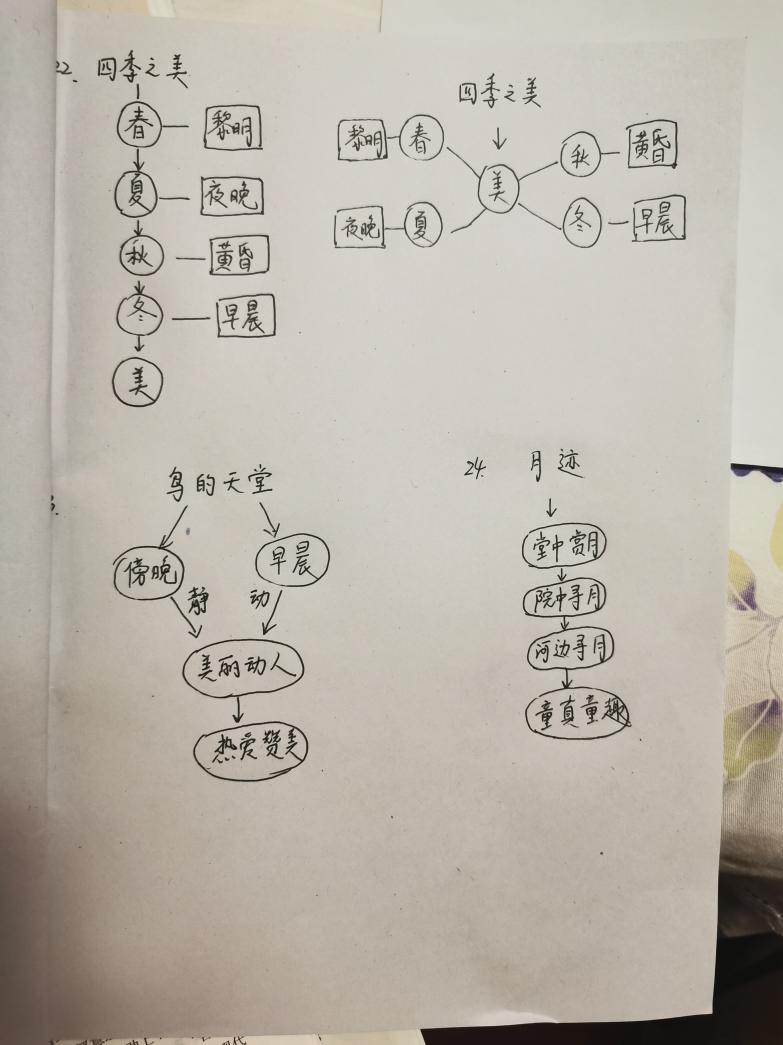 22. 四季之美
春 黎明
夏 夜晚
秋 黄昏
冬 早晨
美
四季之美
黎明 春
秋 黄昏
美
夜晚 夏
冬 早晨
鸟的天堂
傍晚 早晨
静 动
美丽动人
热爱赞美
24. 月迹
堂中赏月
院中寻月
河边寻月
童真童趣